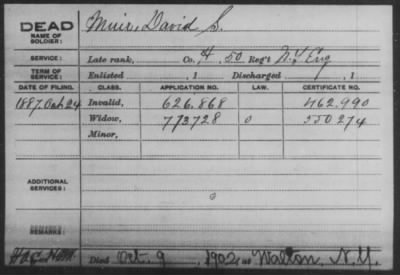 DEAD
NAME OF SOLDIER: Muir, David S.
SERVICE: Late rank, Co. 4, 50 Reg't N.Y. Eng
TERM OF SERVICE: Enlisted , 1 Discharged , 1
DATE OF FILING. CLASS. APPLICATION NO. LAW. CERTIFICATE NO.
1887 24 Invalid, 626.868 462.990
Widow, 773728 0 550274
Minor,
ADDITIONAL SERVICES:
REMARKS:
Died Oct. 9, 1902, at Walton, N.Y.